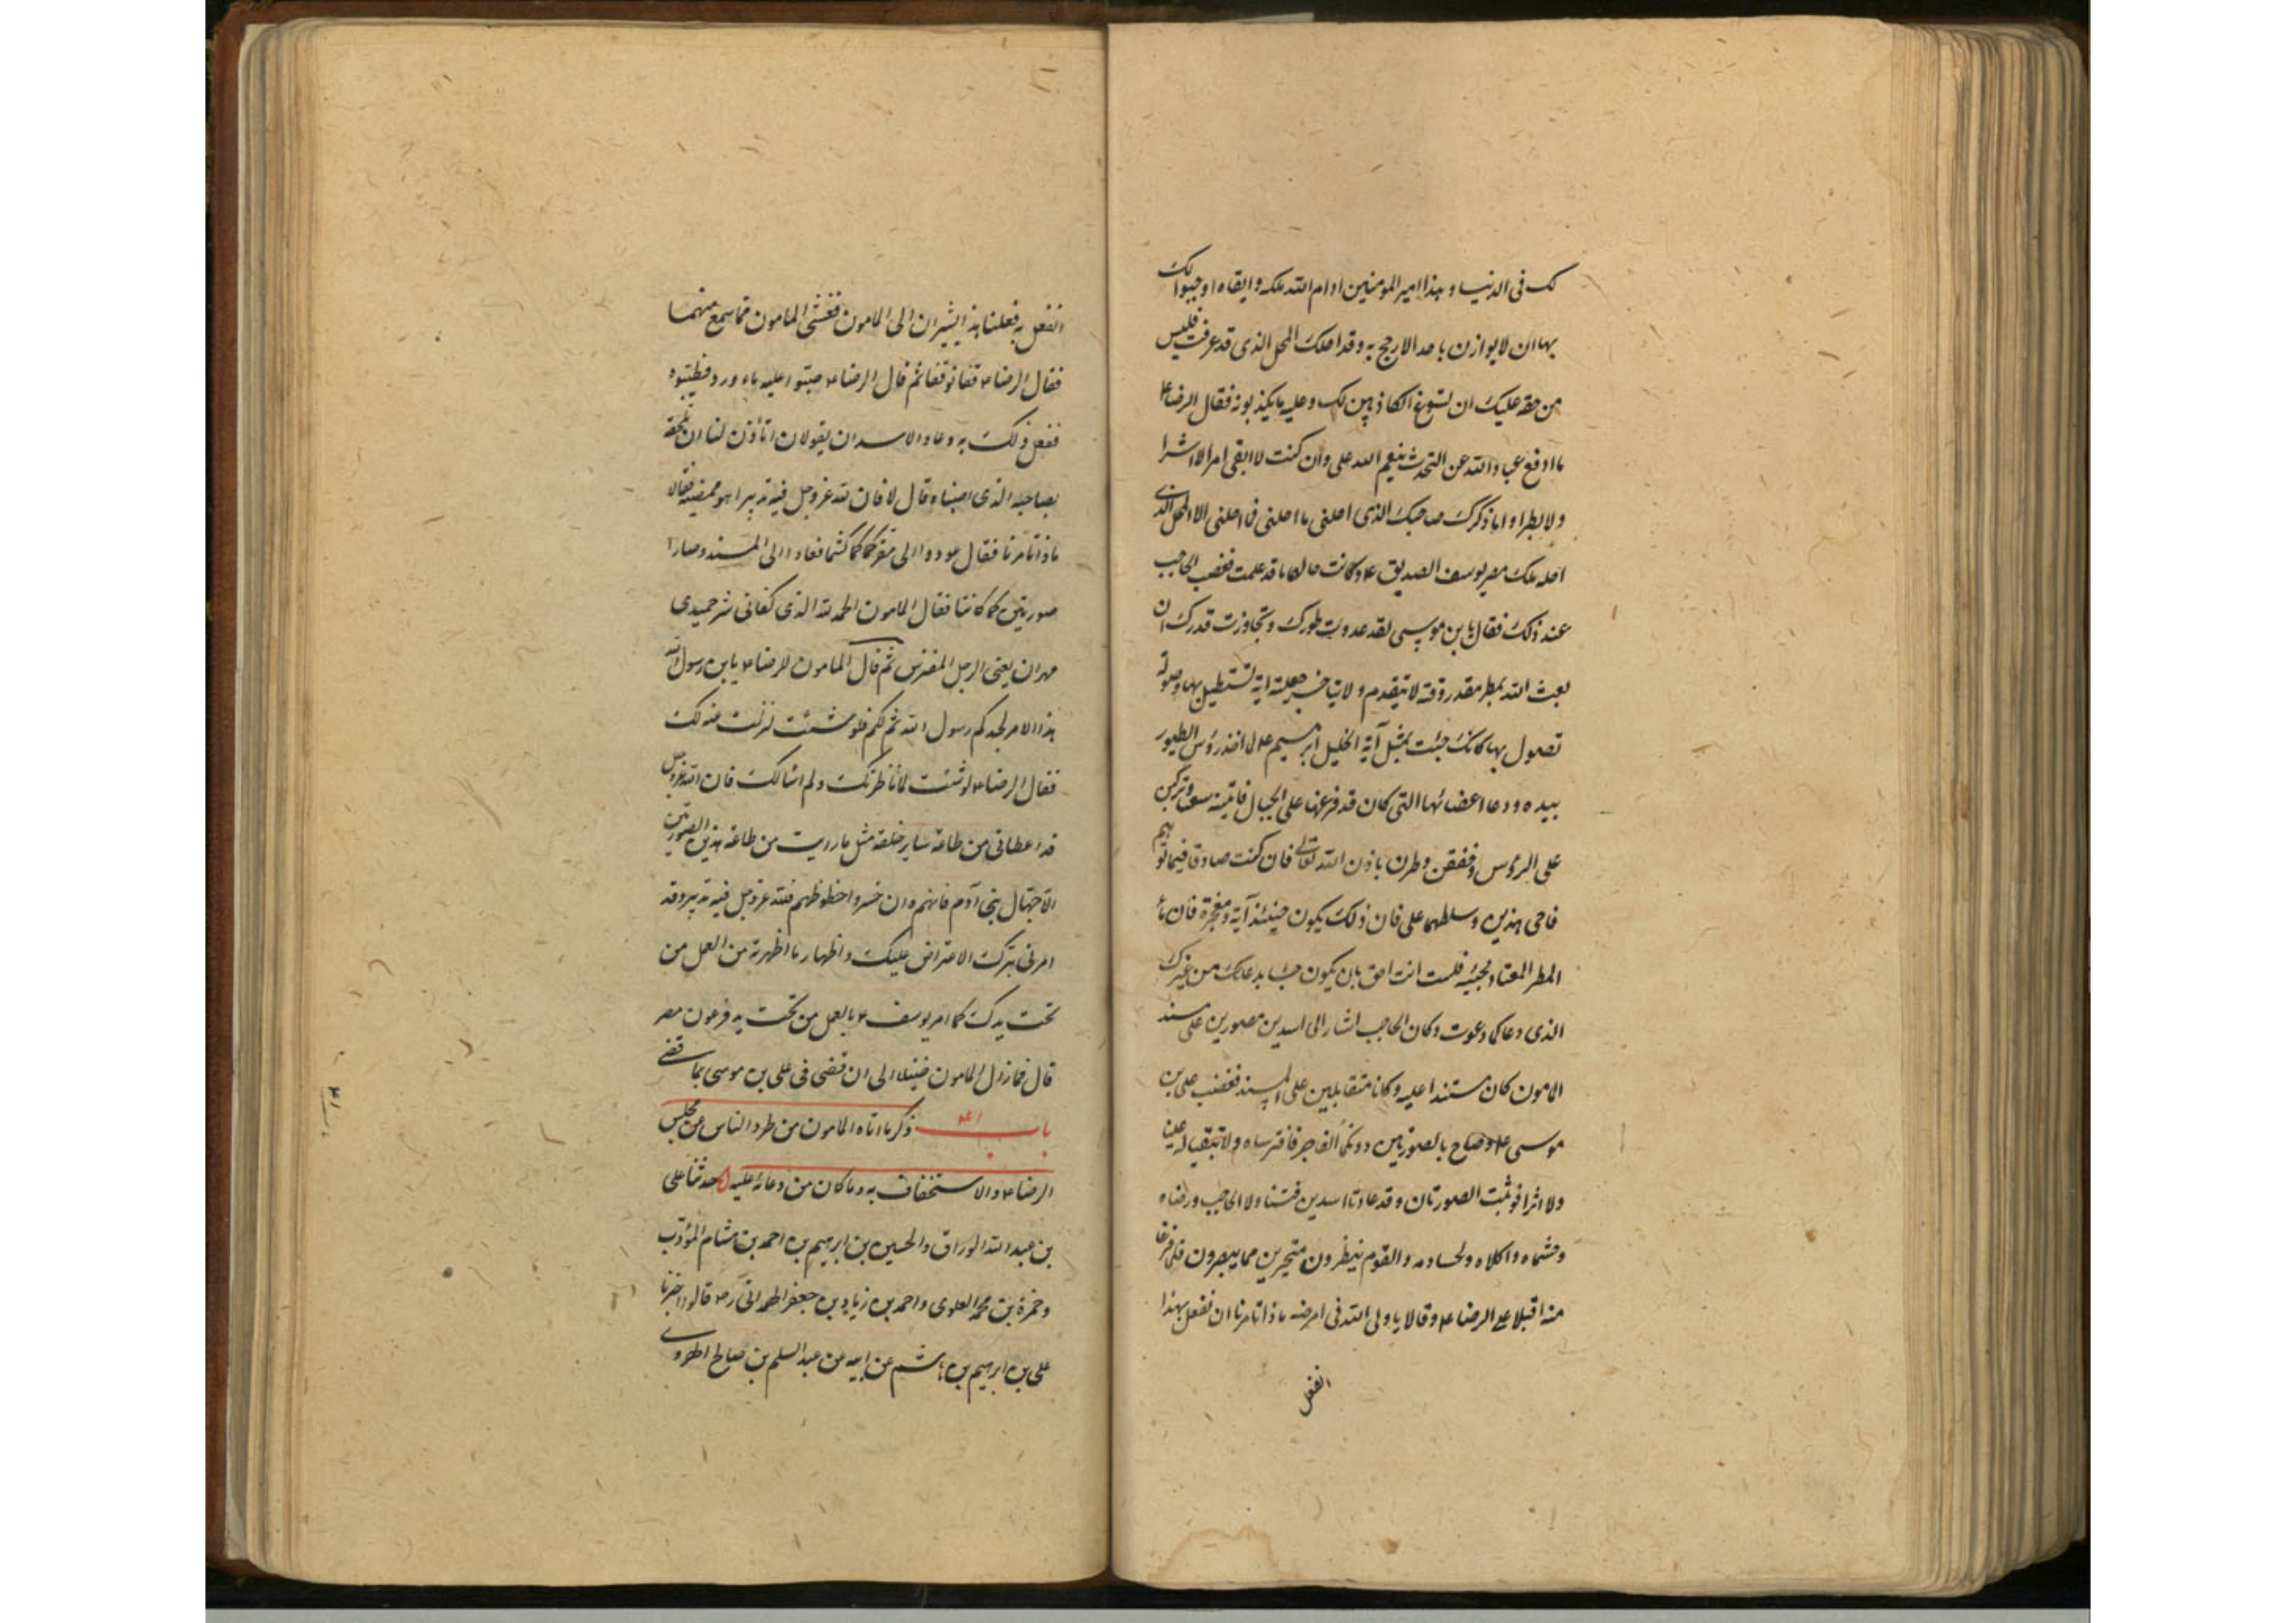 لك فى الدنيا و هذا امير المومنين ادام الله ملكه و ابقاه اوجبوا لك
بها ان لا يوازن باحد الا رجح به وقد احلك المحل الذى قد عرفت فليس
من حقه عليك ان تسوغ الكاذبين لك وعليه ما يكذبونه فقال الرضا ع
ما ادفع عباد الله عن التحدث بنعم الله على وان كنت لا ابقى اشرا
ولا بطرا و اما ذكرك صاحبك الذى احلنى ما احلنى فما احلنى الا المحل الذى
احله ملك مصر يوسف الصديق ع وكانت حالهما ما قد علمت فغضب الحاجب
عند ذلك فقال يا بن موسى لقد عدوت طورك وتجاوزت قدرك ان
بعث الله بمطر مقدر وقته لا يتقدم و لا يتاخر جعلته اية تستطيل بها وصولة
تصول بها كانك جئت بمثل آية الخليل ابرهيم ع لما اخذ رؤس الطيور
بيده و دعا اعضائها التى كان قد فرقها على الجبال فاتينه سعيا وتركبن
على الروس وخفقن وطرن باذن الله تعالى فان كنت صادقا فيما توهم
فاحى هذين وسلطهما على فان ذلك يكون حينئذ آية ومعجزة فان ما
المطر المعتاد مجيئه فلست انت احق بان يكون جاء بدعائك من غيرك
الذى دعا كما دعوت وكان الحاجب اشار الى اسدين مصورين على مسند
المامون كان مستندا عليه وكانا متقابلين على المسند فغضب على بن
موسى ع وصاح بالصورتين دونكما الفاجر فافترساه ولا تبقيا له عينا
ولا اثرا فوثبت الصورتان وقد عادتا اسدين فتناولا الحاجب ورضاه
وهشماه واكلاه ولحسا دمه والقوم ينظرون متحيرين مما يبصرون فلما فرغا
منه اقبلا على الرضا ع وقالا يا ولى الله فى ارضه ماذا تامرنا ان نفعل بهذا
انفعل
انفعل به فعلنا بهذا يشيران الى المامون فغشى المامون مما سمع منهما
فقال الرضا ع قفا فوقفا ثم قال الرضا ع صبوا عليه ماء ورد وطيبوه
ففعل ذلك به وعاد الاسدان يقولان اتأذن لنا ان نلحقه
بصاحبه الذى افنيناه قال لا فان لله عز وجل فيه تدبيرا هو ممضيه فقالا
ماذا تامرنا فقال عودا الى مقركما كما كنتما فعادا الى المسند وصارا
صورتين كما كانتا فقال المامون الحمد لله الذى كفانى شر حميد بن
مهران يعنى الرجل المفترس ثم قال المامون للرضا ع يا بن رسول الله
هذا الامر لجدكم رسول الله ثم لكم فلو شئت لنزلت عنه لك
فقال الرضا ع لو شئت لما ناظرتك ولم اسالك فان الله عز وجل
قد اعطانى من طاعة ساير خلقه مثل ما رايت من طاعة هذين الصورتين
الا جهال بنى آدم فانهم وان خسروا حظوظهم فلله عز وجل فيه تدبير وقد
امرنى بترك الاعتراض عليك و اظهار ما اظهرته من العمل من
تحت يدك كما امر يوسف ع بالعمل من تحت يد فرعون مصر
قال فما زال المامون ضئيلا الى ان قضى فى على بن موسى ما قضى
باب ٤١ ذكر ما اتاه المامون من طرد الناس عن مجلس
الرضا ع والاستخفاف به وما كان من دعائه عليه حدثنا على
بن عبد الله الوراق والحسين بن ابرهيم بن احمد بن هشام المؤدب
وحمزة بن محمد العلوى واحمد بن زياد بن جعفر الهمدانى رض قالوا اخبرنا
على بن ابرهيم بن هاشم عن ابيه عن عبد السلم بن صالح الهروى